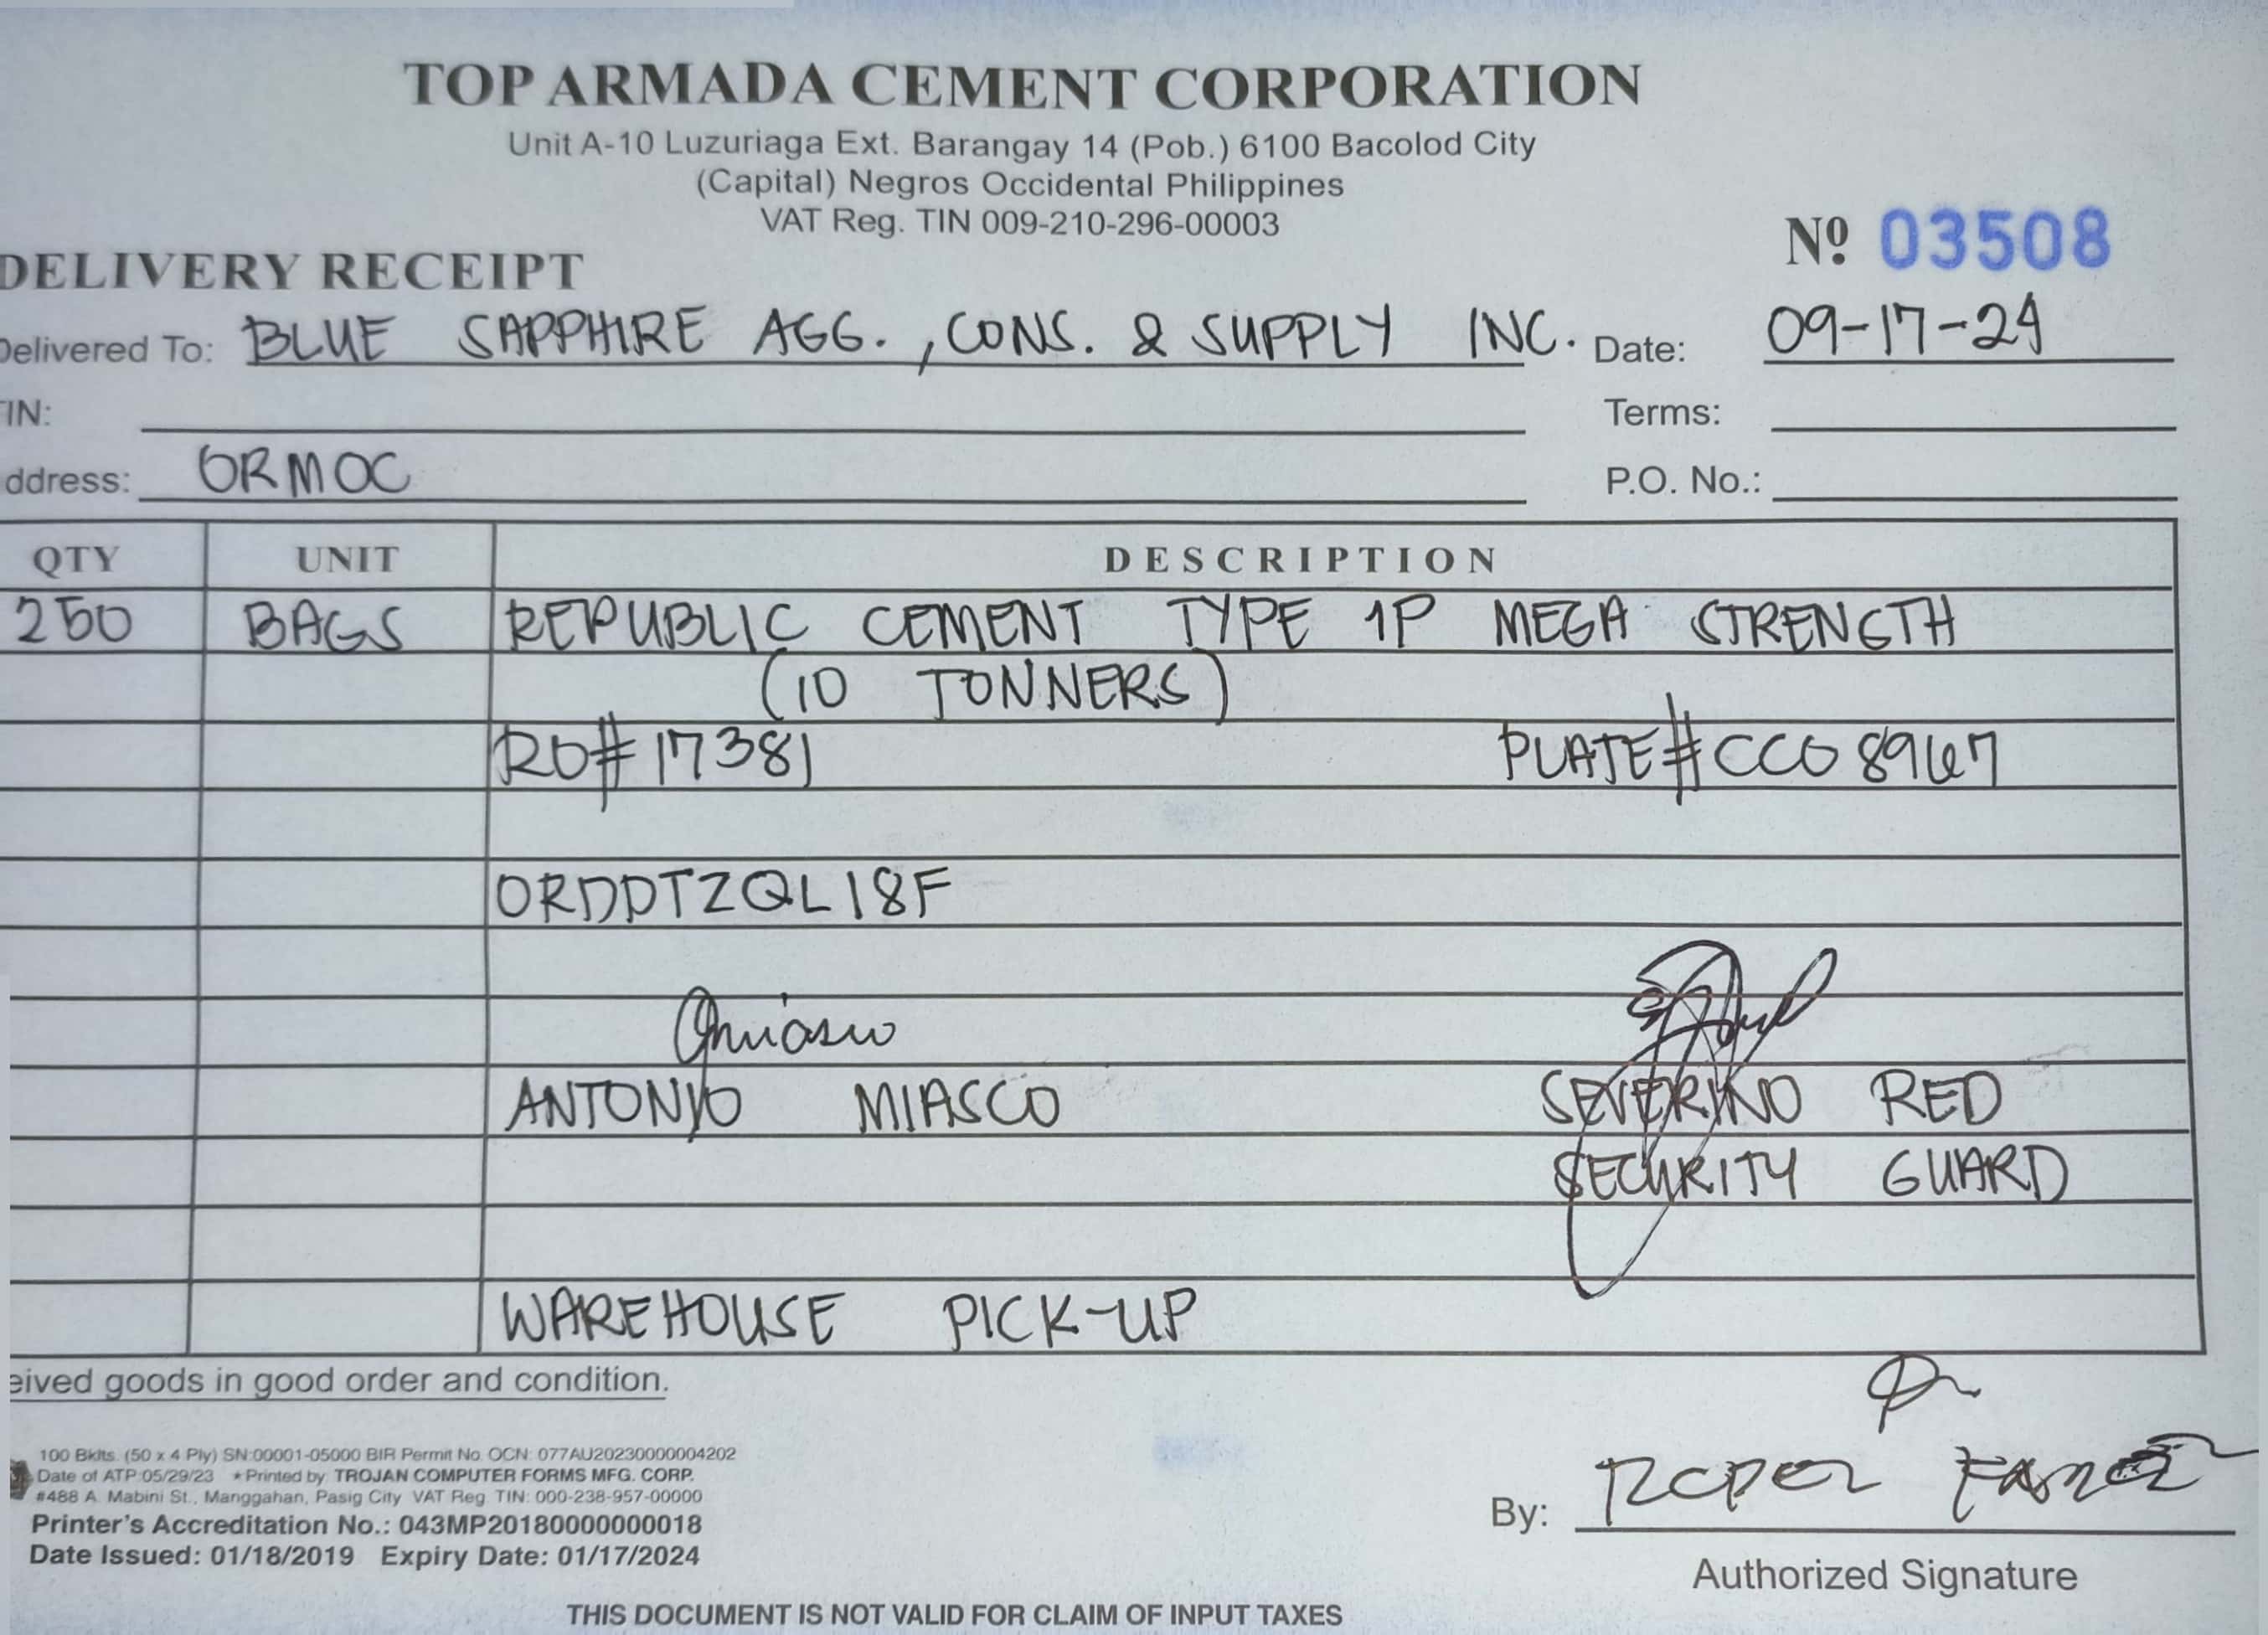 TOP ARMADA CEMENT CORPORATION
Unit A-10 Luzuriaga Ext. Barangay 14 (Pob.) 6100 Bacolod City
(Capital) Negros Occidental Philippines
VAT Reg. TIN 009-210-296-00003
Nº 03508
DELIVERY RECEIPT
Delivered To: BLUE SAPPHIRE AGG., CONS. & SUPPLY INC. Date: 09-17-24
TIN: Terms:
ddress: ORMOC P.O. No.:
QTY UNIT DESCRIPTION
250 BAGS REPUBLIC CEMENT TYPE 1P MEGA STRENGTH
(10 TONNERS)
RO#17381 PLATE#CCO 8967
ORDDTZQL18F
ANTONIO MIASCO SEVERINO RED
SECURITY GUARD
WAREHOUSE PICK-UP
eived goods in good order and condition.
100 Bklts. (50 x 4 Ply) SN:00001-05000 BIR Permit No. OCN: 077AU20230000004202
Date of ATP:05/29/23 * Printed by: TROJAN COMPUTER FORMS MFG. CORP.
#488 A. Mabini St., Manggahan, Pasig City VAT Reg. TIN: 000-238-957-00000
Printer's Accreditation No.: 043MP20180000000018
Date Issued: 01/18/2019 Expiry Date: 01/17/2024
By:
Authorized Signature
THIS DOCUMENT IS NOT VALID FOR CLAIM OF INPUT TAXES